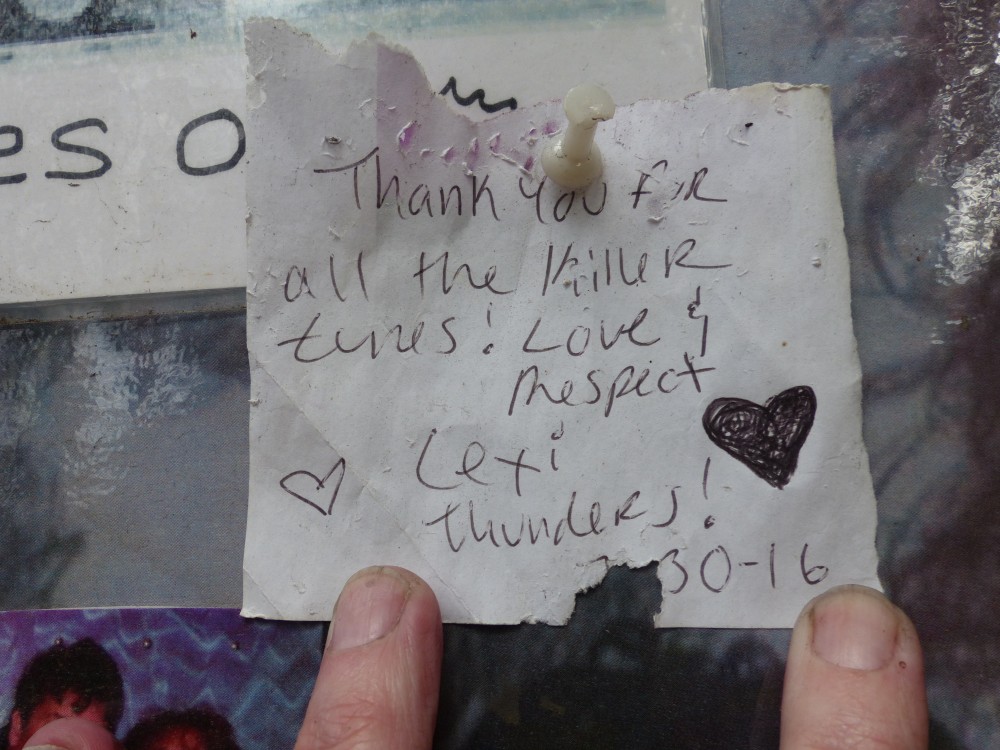 es o
Thank you for
all the killer
tunes! Love &
Respect
Lexi
thunders!
30-16